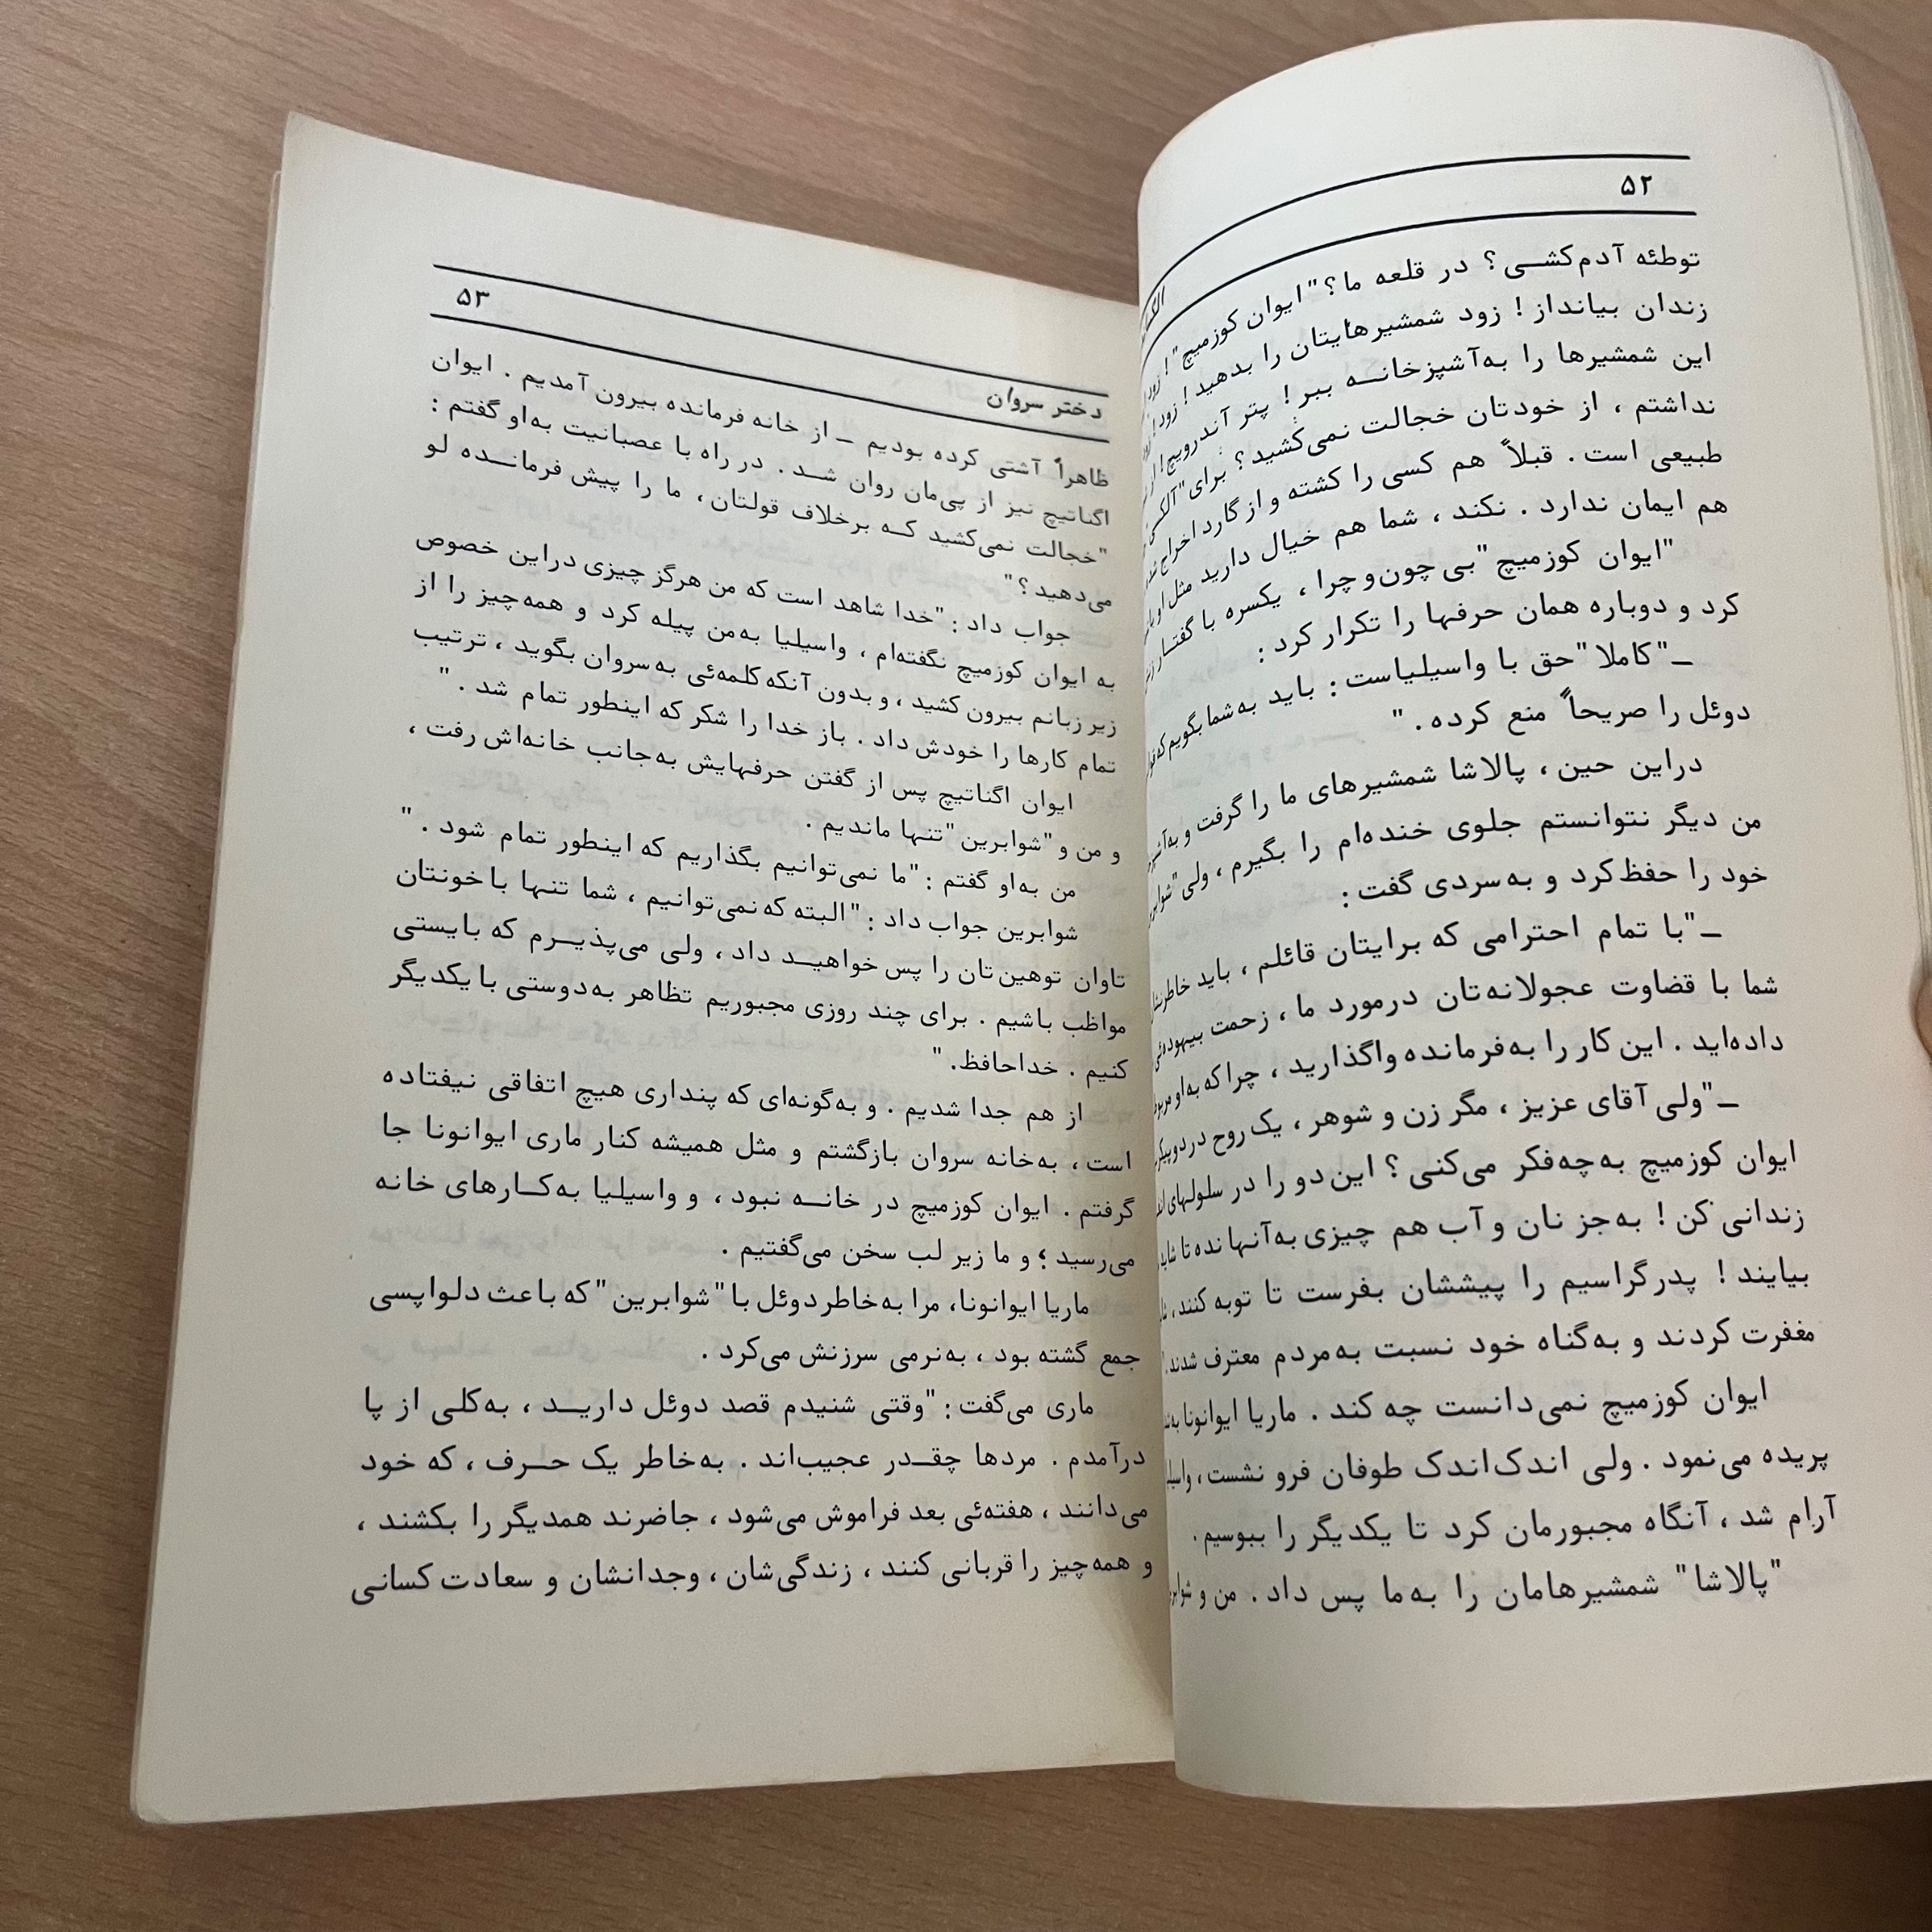 ۵۲
توطئه آدم‌کشــی؟ در قلعه ما؟" ایوان کوزمیچ"! زود
زندان بیانداز! زود شمشیرهایتان را بدهید! زود!
این شمشیرها را به‌آشپزخانــه ببر! پتر آندرویچ!
نداشتم، از خودتان خجالت نمی‌کشید؟ برای "آلکسی
طبیعی است. قبلاً هم کسی را کشته و از گارد اخراج
هم ایمان ندارد. نکند، شما هم خیال دارید مثل او
"ایوان کوزمیچ "بی‌چون‌و چرا، یکسره با گفتــار
کرد و دوباره همان حرفها را تکرار کرد:
ــ"کاملا "حق با واسیلیاست: باید به‌شما بگویم که
دوئل را صریحاً منع کرده. "
دراین حین، پالاشا شمشیرهای ما را گرفت و
من دیگر نتوانستم جلوی خنده‌ام را بگیرم، ولی
خود را حفظ‌کرد و به‌سردی گفت:
ــ "با تمام احترامی که برایتان قائلم، باید
شما با قضاوت عجولانه‌تان درمورد ما، زحمت بیهوده‌ئی
داده‌اید. این کار را به‌فرمانده واگذارید، چرا که به‌او
ــ"ولی آقای عزیز، مگر زن و شوهر، یک روح در دوپیکر
ایوان کوزمیچ به‌چه‌فکر می‌کنی؟ این‌دو را در سلولهای
زندانی‌کن! به‌جز نان و آب هم چیزی به‌آنها نده تا
بیایند! پدرگراسیم را پیششان بفرست تا توبه کنند،
مغفرت کردند و به‌گناه خود نسبت به‌مردم معترف شدند.
ایوان کوزمیچ نمی‌دانست چه کند. ماریا ایوانونا
پریده می‌نمود. ولی اندک‌اندک طوفان فرو نشست،
آرام شد، آنگاه مجبورمان کرد تا یکدیگر را ببوسیم.
"پالاشا" شمشیرهامان را به‌ما پس داد. من و
دختر سروان
۵۳
ظاهراً آشتی کرده بودیم ــ از خانه فرمانده بیرون آمدیم. ایوان
اگناتیچ نیز از پی‌مان روان شــد. در راه با عصبانیت به‌او گفتم:
"خجالت نمی‌کشید کــه برخلاف قولتان، ما را پیش فرمانــده لو
می‌دهید؟"
جواب داد: "خدا شاهد است که من هرگز چیزی دراین خصوص
به ایوان کوزمیچ نگفته‌ام، واسیلیا به‌من پیله کرد و همه‌چیز را از
زیر زبانم بیرون کشید، و بدون آنکه کلمه‌ئی به‌سروان بگوید، ترتیب
تمام کارها را خودش داد. باز خدا را شکر که اینطور تمام شد. "
ایوان اگناتیچ پس از گفتن حرفهایش به‌جانب خانه‌اش رفت،
و من و "شوابرین"تنها ماندیم.
من به‌او گفتم: "ما نمی‌توانیم بگذاریم که اینطور تمام شود. "
شوابرین جواب داد: "البته که نمی‌توانیم، شما تنها با خونتان
تاوان توهین‌تان را پس خواهیــد داد، ولی می‌پذیــرم که بایستی
مواظب باشیم. برای چند روزی مجبوریم تظاهر به‌دوستی با یکدیگر
کنیم. خداحافظ."
از هم جدا شدیم. و به‌گونه‌ای که پنداری هیچ اتفاقی نیفتاده
است، به‌خانه سروان بازگشتم و مثل همیشه کنار ماری ایوانونا جا
گرفتم. ایوان کوزمیچ در خانــه نبود، و واسیلیا به‌کــارهای خانه
می‌رسید؛ و ما زیر لب سخن می‌گفتیم.
ماریا ایوانونا، مرا به‌خاطر دوئل با "شوابرین "که باعث دلواپسی
جمع گشته بود، به‌نرمی سرزنش می‌کرد.
ماری می‌گفت: "وقتی شنیدم قصد دوئل داریــد، به‌کلی از پا
درآمدم. مردها چقــدر عجیب‌اند. به‌خاطر یک حــرف، که خود
می‌دانند، هفته‌ئی بعد فراموش می‌شود، حاضرند همدیگر را بکشند،
و همه‌چیز را قربانی کنند، زندگی‌شان، وجدانشان و سعادت کسانی